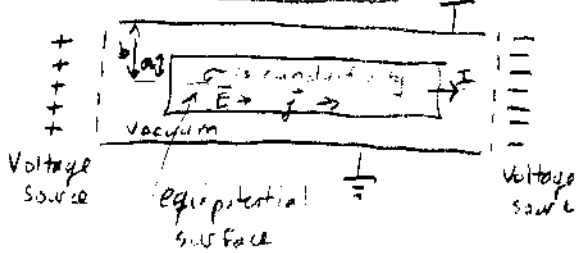 b
a
σ is conductivity
I
E
j
vacuum
Voltage
Source
equipotential
surface
Voltage
source